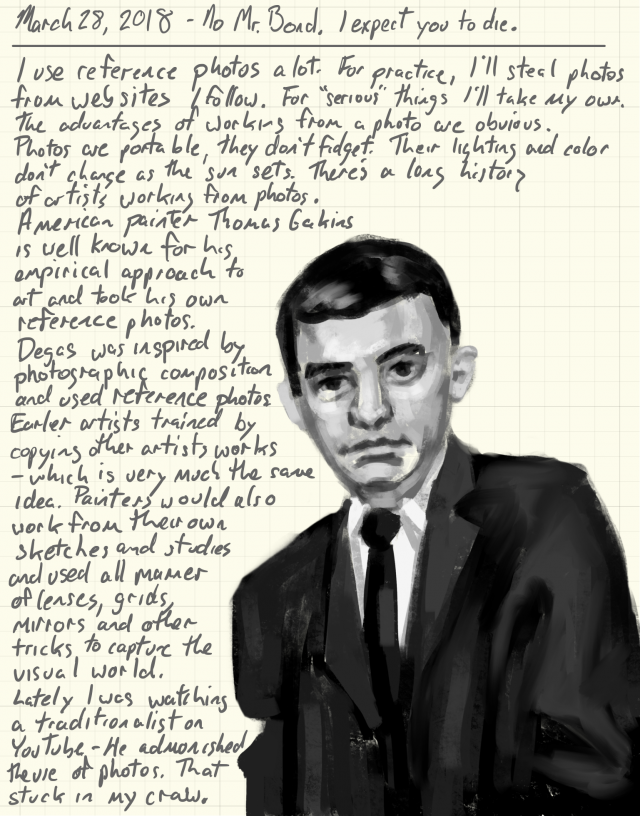 March 28, 2018 - No Mr. Bond. I expect you to die.
I use reference photos a lot. For practice, I'll steal photos
from websites I follow. For "serious" things I'll take my own.
The advantages of working from a photo are obvious.
Photos are portable, they don't fidget. Their lighting and color
don't change as the sun sets. There's a long history
of artists working from photos.
American painter Thomas Eakins
is well known for his
empirical approach to
art and took his own
reference photos.
Degas was inspired by
photographic composition
and used reference photos
Earler artists trained by
copying other artists works
- which is very much the same
idea. Painters would also
work from their own
sketches and studies
and used all manner
of lenses, grids,
mirrors and other
tricks to capture the
visual world.
Lately I was watching
a traditionalist on
YouTube - He admonished
the use of photos. That
stuck in my craw.